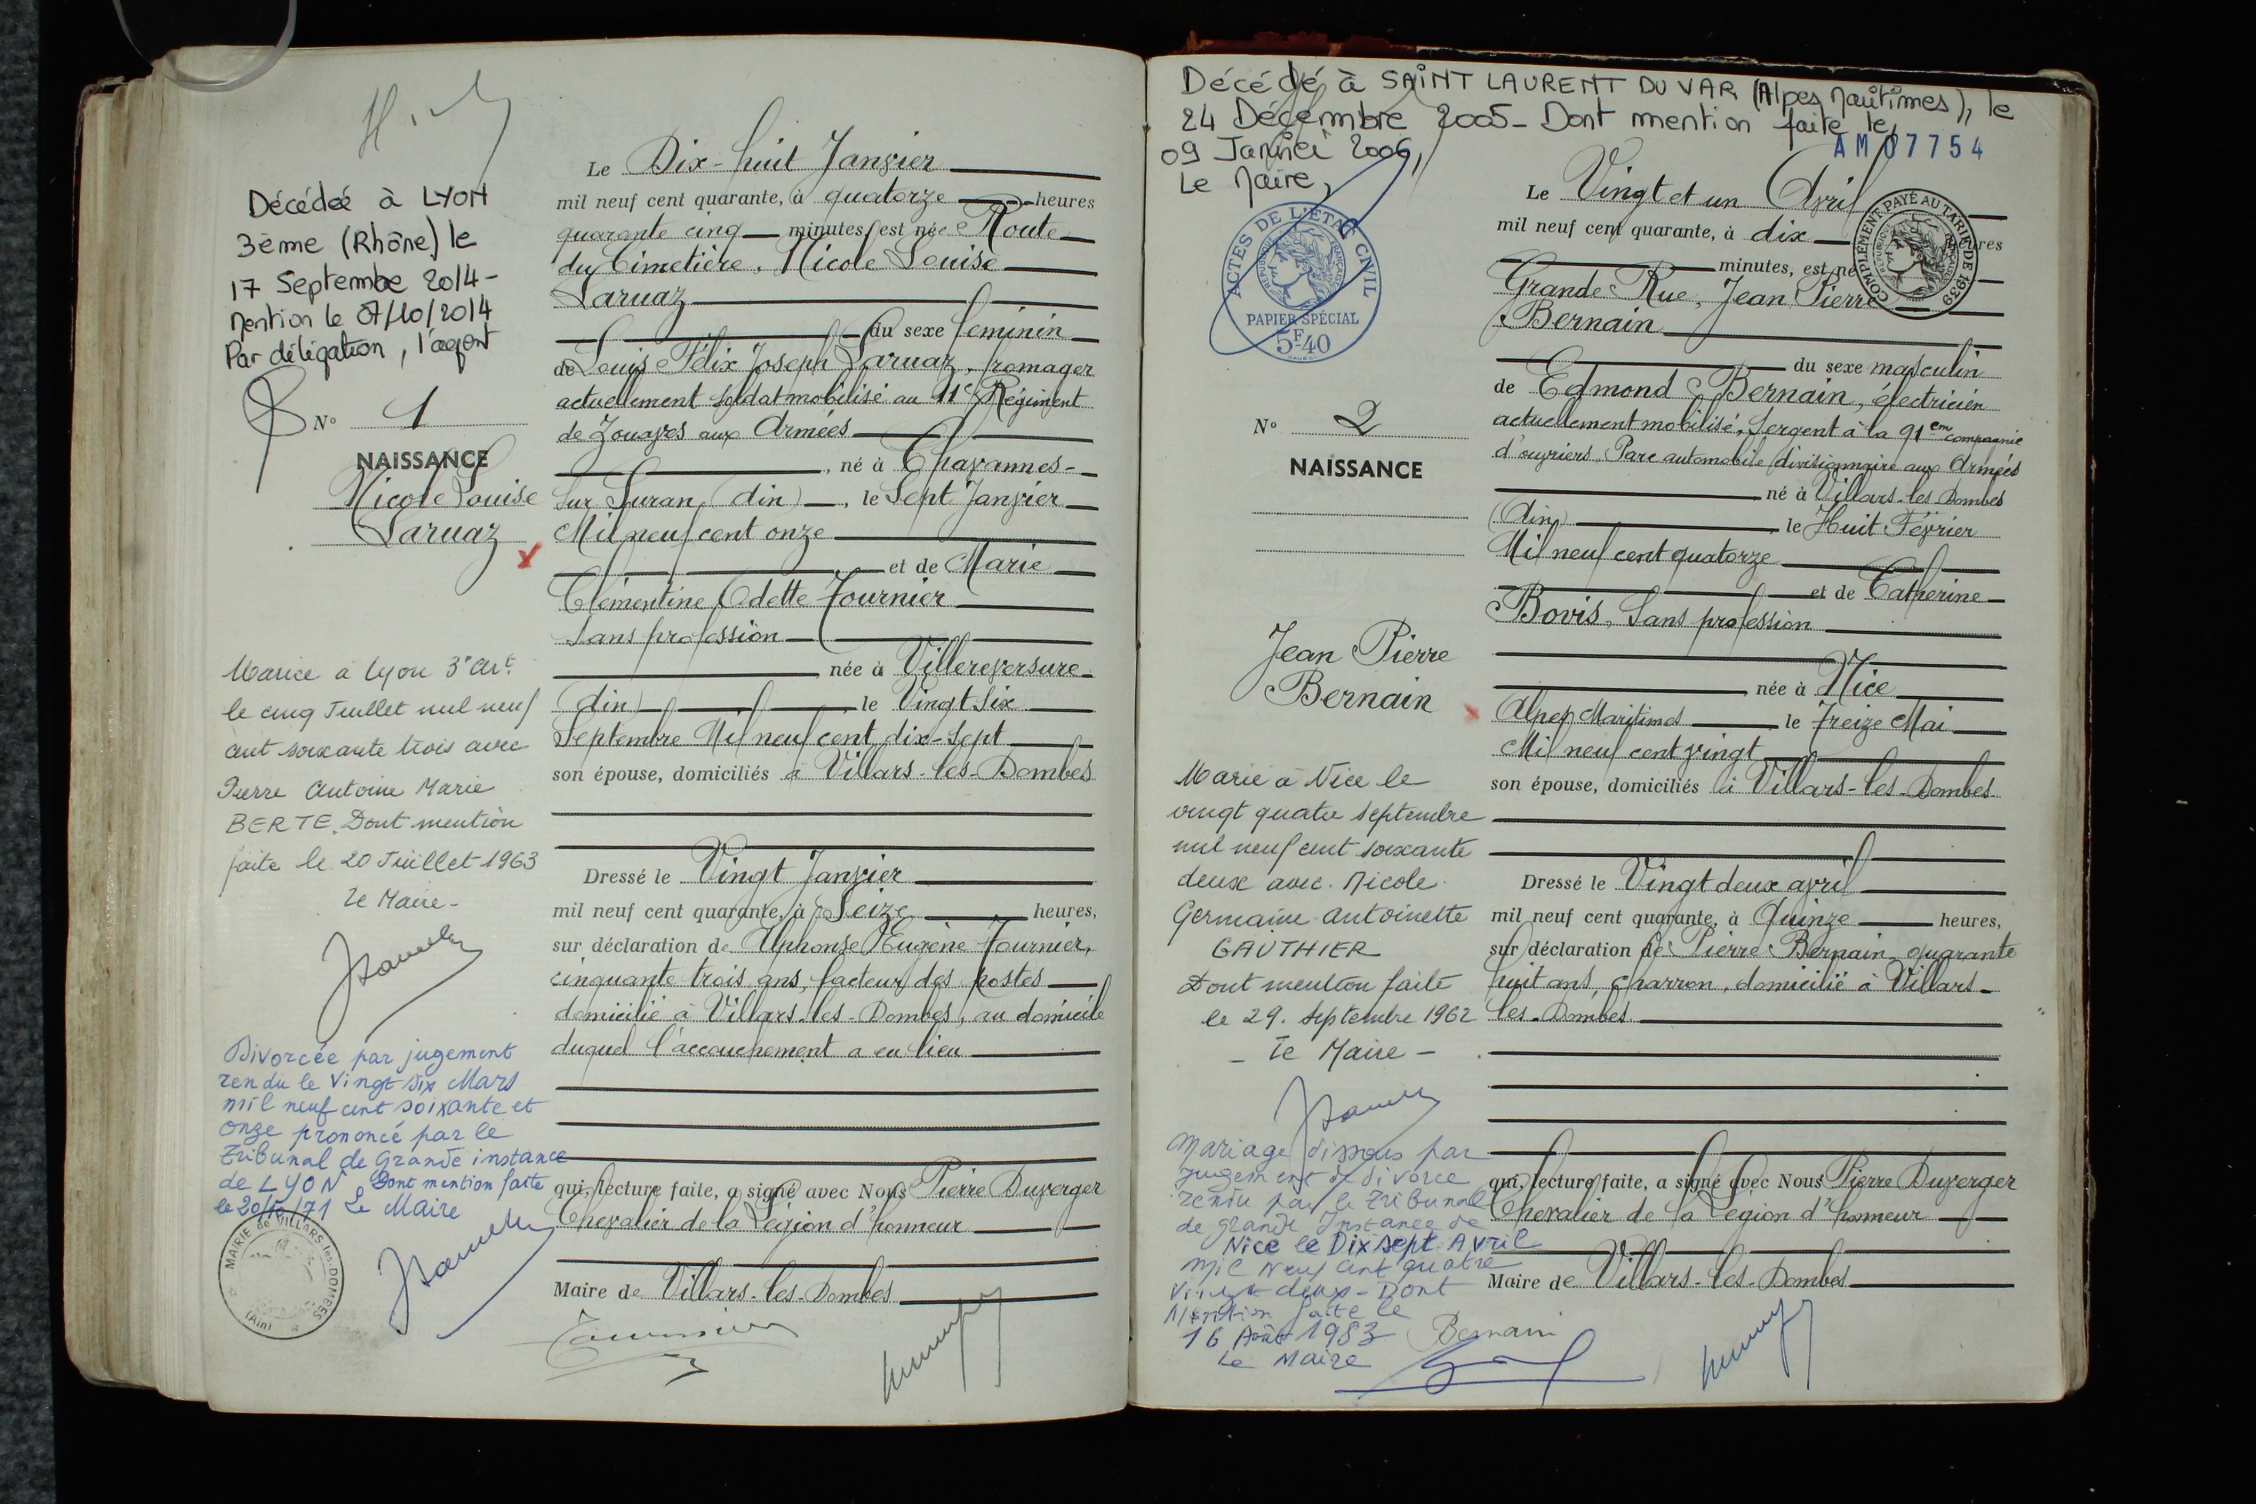 Décédée à LYON
3ème (Rhône) le
17 Septembre 2014 -
Mention le 07/10/2014
Par délégation, l'agent
N° 1
NAISSANCE
Nicole Louise
Laruaz
Mariée à Lyon 3e Art
le cinq Juillet mil neuf
cent soixante trois avec
Pierre Antoine Marie
BERTE. Dont mention
faite le 20 Juillet 1963
Le Maire -
Divorcée par jugement
rendu le vingt six Mars
mil neuf cent soixante et
onze prononcé par le
Tribunal de Grande instance
de LYON Dont mention faite
Le Maire
MAIRIE de VILLARS-les-DOMBES
(Ain)
Le Dix-huit Janvier
mil neuf cent quarante, à quatorze heures
quarante cinq minutes, est née Route
du Cimetière, Nicole Louise
Laruaz
du sexe féminin
de Louis Félix Joseph Laruaz, fromager
actuellement soldat mobilisé au 11e Régiment
de Zouaves aux Armées
, né à Chavannes-
sur Suran (Ain), le Sept Janvier
Mil neuf cent onze
et de Marie
Clémentine Odette Fournier
Sans profession
née à Villereversure
(Ain) le Vingt six
Septembre Mil neuf cent dix-sept
son épouse, domiciliés à Villars-les-Dombes
Dressé le Vingt Janvier
mil neuf cent quarante, à Seize heures,
sur déclaration de Alphonse Eugène Fournier,
cinquante trois ans, facteur des postes
domicilié à Villars-les-Dombes, au domicile
duquel l'accouchement a eu lieu
qui, lecture faite, a signé avec Nous Pierre Duverger
Chevalier de la Légion d'honneur
Maire de Villars-les-Dombes
Décédé à SAINT LAURENT DU VAR (Alpes Maritimes), le
24 Décembre 2005 - Dont mention faite le
09 Janvier 2006,
Le Maire,
AM 07754
ACTES DE L'ÉTAT CIVIL
PAPIER SPÉCIAL
5F40
N° 2
NAISSANCE
Jean Pierre
Bernain
Marié à Nice le
vingt quatre septembre
mil neuf cent soixante
deux avec Nicole
Germaine Antoinette
GAUTHIER
Dont mention faite
le 29 Septembre 1962
- Le Maire -
Mariage dissous par
jugement de divorce
rendu par le Tribunal
de grande Instance de
Nice le Dix sept Avril
mil neuf cent quatre
vingt deux - Dont
Mention faite le
16 Août 1983
Le Maire
Le Vingt et un Avril
COMPLÉMENT PAYÉ AU TARIF DE 1939
mil neuf cent quarante, à dix heures
minutes, est né
Grande Rue, Jean Pierre
Bernain
du sexe masculin
de Edmond Bernain, électricien
actuellement mobilisé, Sergent à la 91em compagnie
d'ouvriers Parc automobile divisionnaire aux Armées
né à Villars-les Dombes
(Ain) le Huit Février
Mil neuf cent quatorze
et de Catherine
Bovis, Sans profession
née à Nice
Alpes Maritimes le Treize Mai
Mil neuf cent vingt
son épouse, domiciliés à Villars-les-Dombes
Dressé le Vingt deux avril
mil neuf cent quarante, à Quinze heures,
sur déclaration de Pierre Bernain quarante
huit ans, charron, domicilié à Villars-
les-Dombes
qui, lecture faite, a signé avec Nous Pierre Duverger
Chevalier de la Légion d'honneur
Maire de Villars-les-Dombes
Bernain